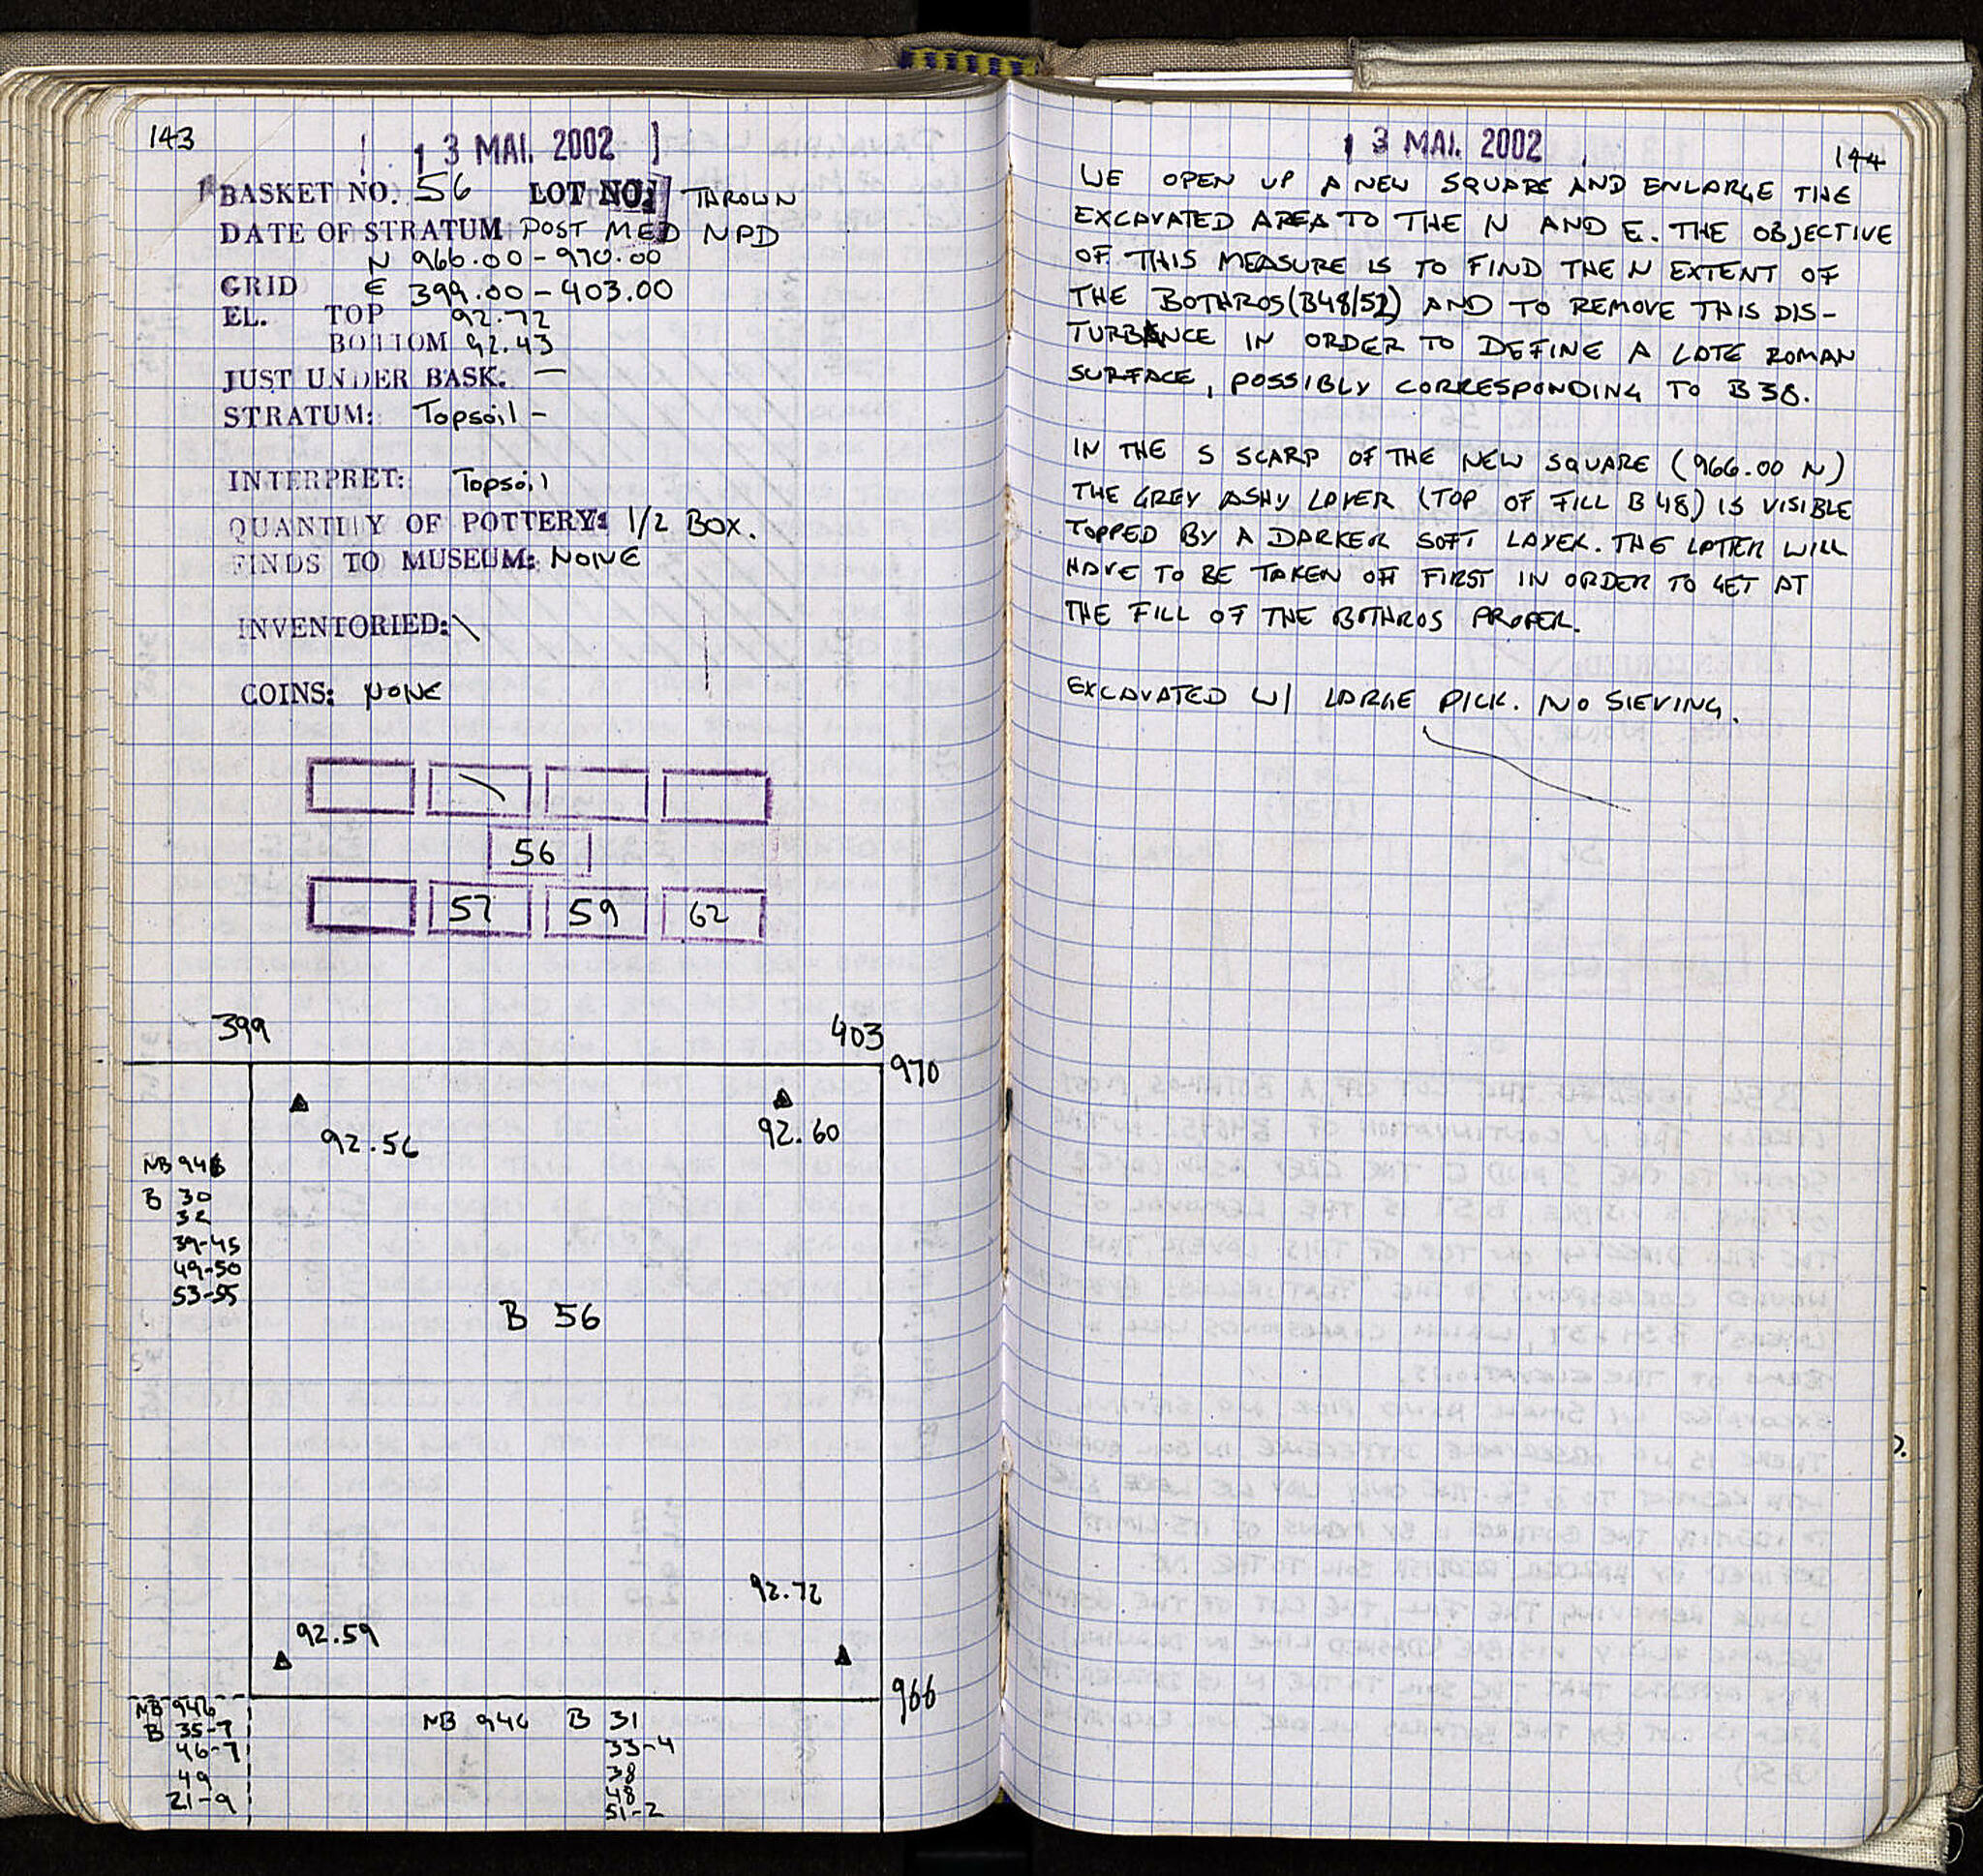 143
13 MAI. 2002
BASKET NO. 56 LOT NO. THROWN
DATE OF STRATUM POST MED NPD
N 966.00-970.00
GRID E 399.00-403.00
EL. TOP 92.72
BOTTOM 92.43
JUST UNDER BASK. —
STRATUM: Topsoil -
INTERPRET: Topsoil
QUANTITY OF POTTERY: 1/2 BOX.
FINDS TO MUSEUM: NONE
INVENTORIED: \
COINS: NONE
56
57 59 62
399 403
970
92.56 92.60
NB 946
B 30
32
39-45
49-50
53-55
B 56
92.72
92.59
966
NB 946
B 35-7
46-7
49
21-9
NB 946 B 31
33-4
38
48
51-2
13 MAI. 2002
144
WE OPEN UP A NEW SQUARE AND ENLARGE THE
EXCAVATED AREA TO THE N AND E. THE OBJECTIVE
OF THIS MEASURE IS TO FIND THE N EXTENT OF
THE BOTHROS (B48/52) AND TO REMOVE THIS DIS-
TURBANCE IN ORDER TO DEFINE A LATE ROMAN
SURFACE, POSSIBLY CORRESPONDING TO B38.
IN THE S SCARP OF THE NEW SQUARE (966.00 N)
THE GREY ASHY LAYER (TOP OF FILL B48) IS VISIBLE
TOPPED BY A DARKER SOFT LAYER. THE LATTER WILL
HAVE TO BE TAKEN OFF FIRST IN ORDER TO GET AT
THE FILL OF THE BOTHROS PROPER.
EXCAVATED W/ LARGE PICK. NO SIEVING.